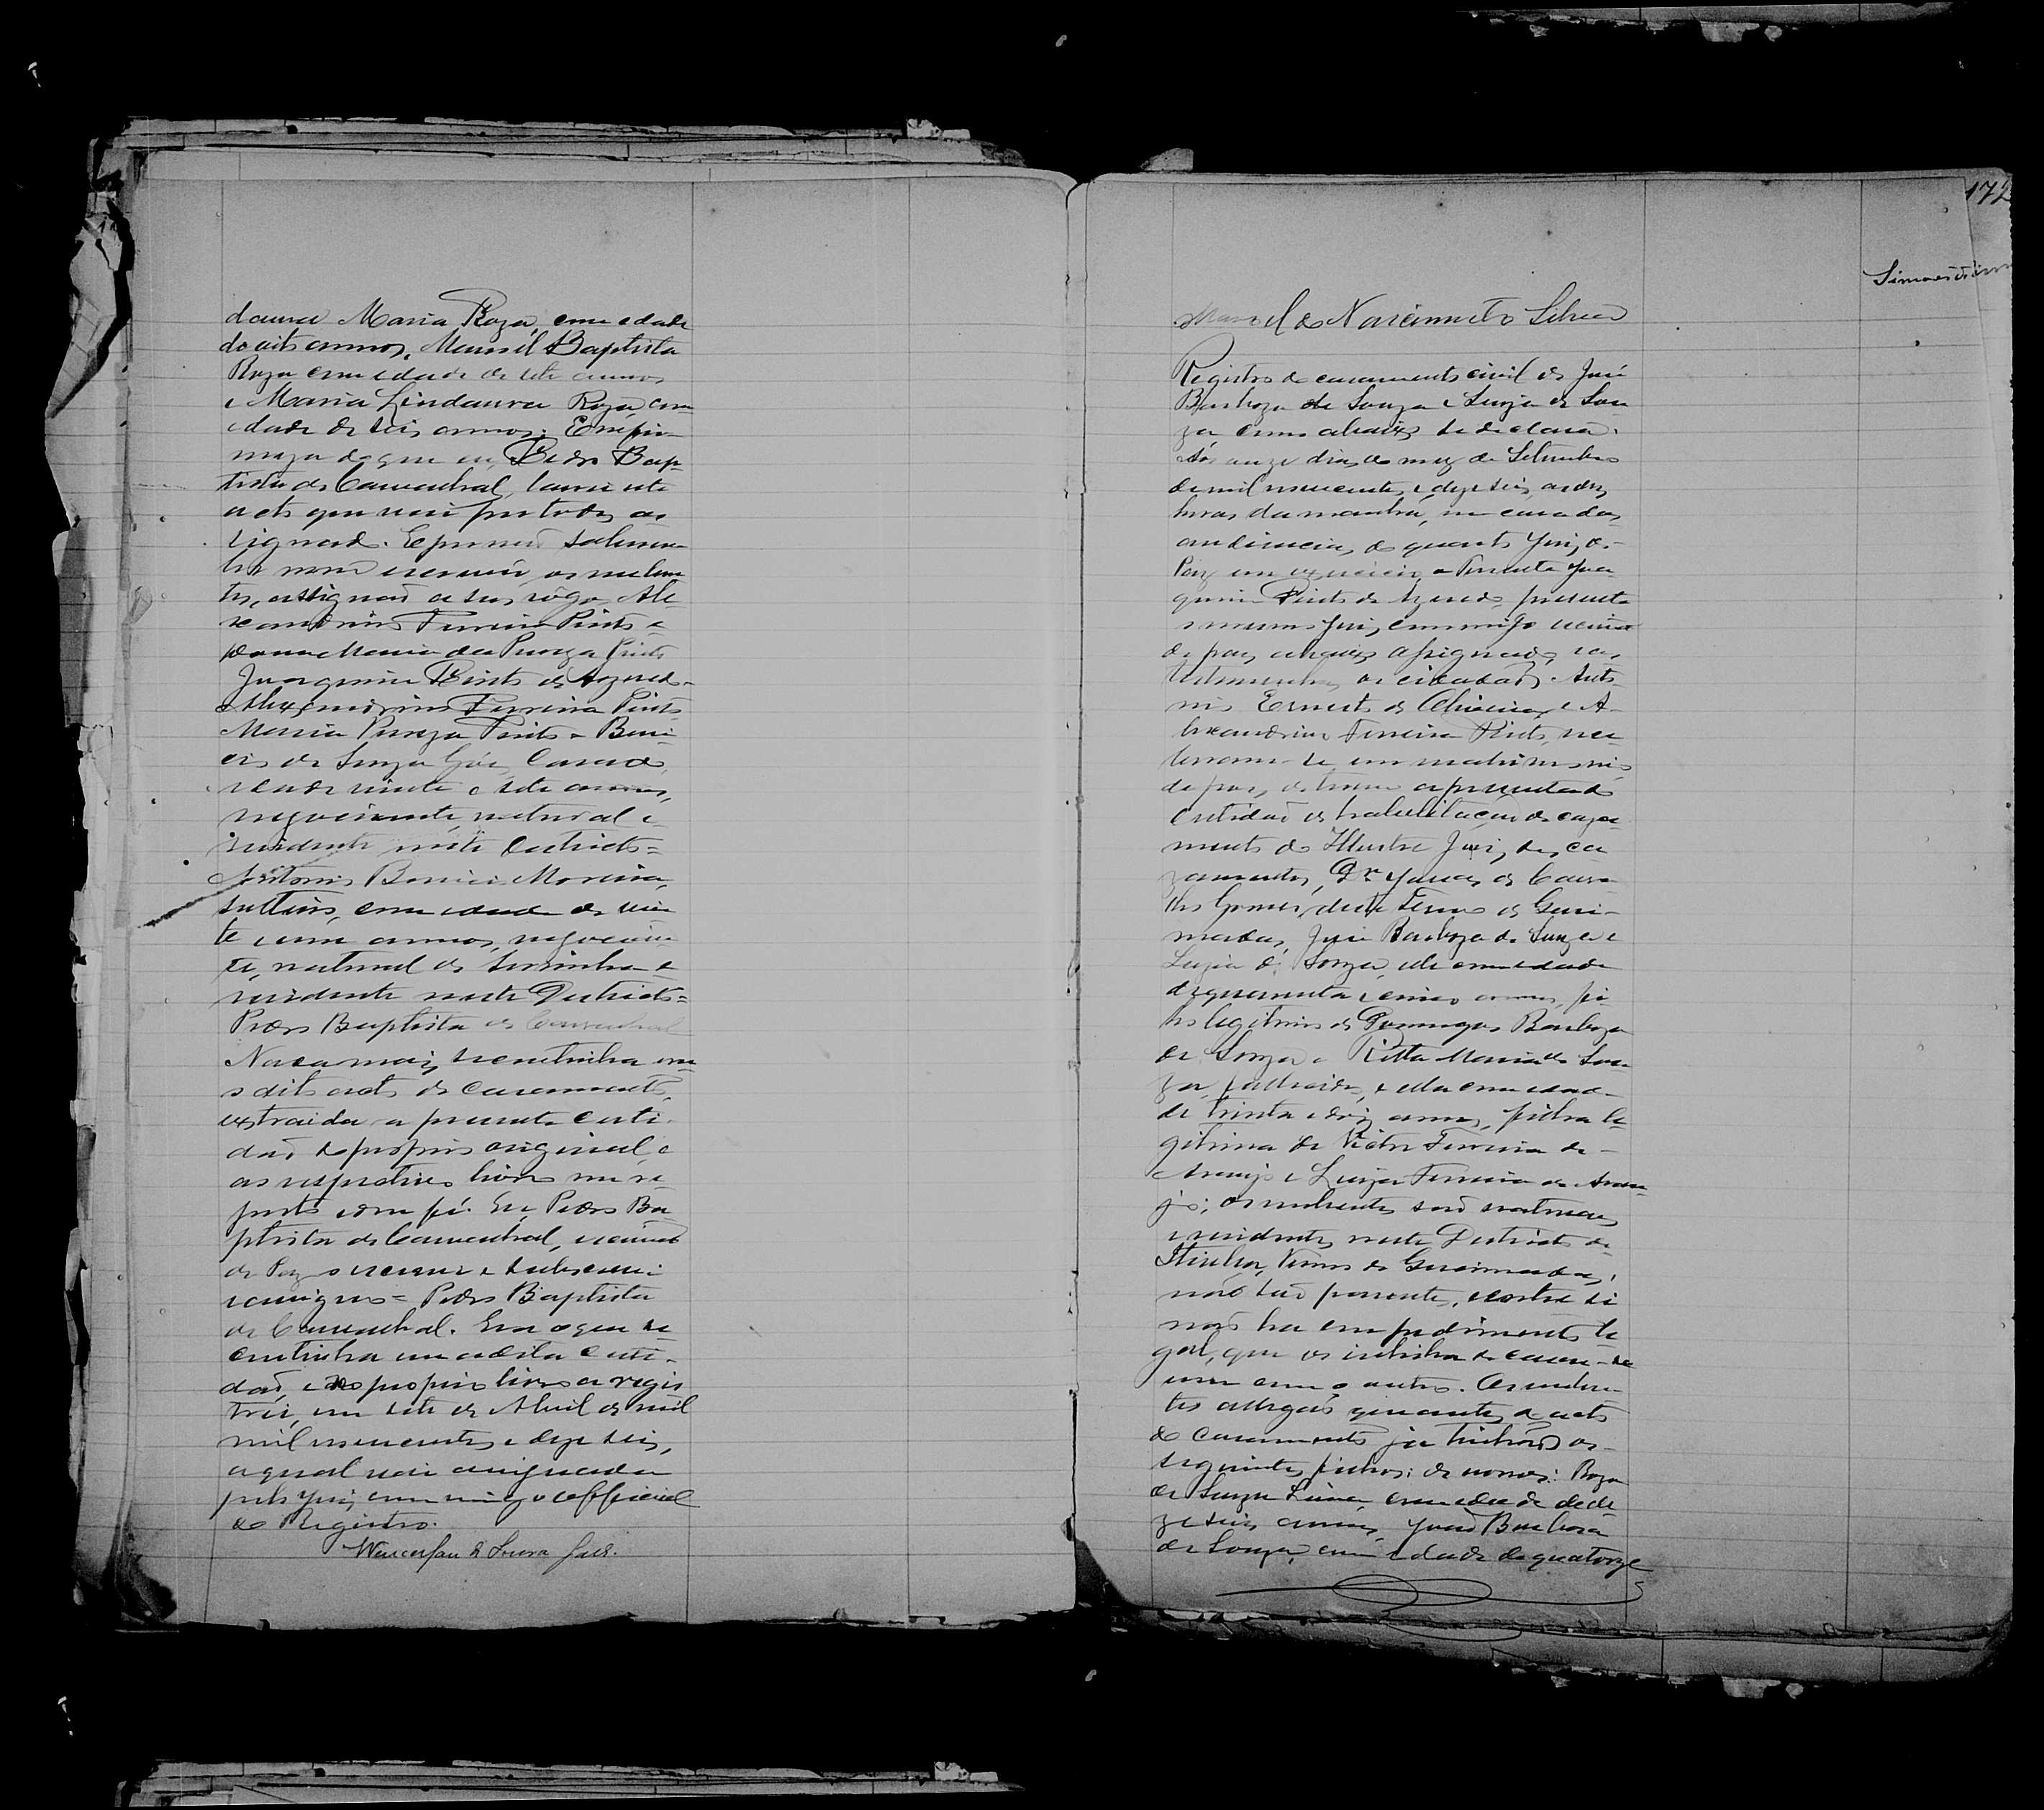 daura Maria Roza, com edade
de oito annos, Manoel Baptista
Roza com edade de sete annos
e Maria Lindaura Roza, com
edade de seis annos. E no fir-
meza do que eu, Pedro Bap-
tista de Carvalhal, lavrei este
acto que vai por todos as-
signado. E por não saberem
ler nem escrever os nuben-
tes, assignão a seu rogo Ale-
xandrino Ferreira Pinto e
Dona Maria da Pureza Pinto
Joaquim Pinto de Azevedo =
Alexandrino Ferreira Pinto
Maria Pureza Pinto = Beni-
cio de Souza Góes, Casado,
edade vinte e sete annos,
negociante, natural e
residente neste Districto =
Antonio Benicio Moreira,
solteiro, com edade de vin-
te e um annos, negocian-
te, natural de Serrinha e
residente neste Districto =
Pedro Baptista de Carvalhal
Nada mais se continha em
o dito acto de casamento,
extraida a presente certi-
dão do proprio original, e
ao respectivo livro me re-
porto e dou fé. Eu, Pedro Ba-
ptista de Carvalhal, escrivão
de Paz o escrevi e subscrevi
e assigno = Pedro Baptista
de Carvalhal. Era o que se
continha em a dita certi-
dão, e no proprio livro a regis-
trei, em sete de Abril de mil
mil novecentos e deze seis,
a qual vai assignada
pelo Juiz commigo official
do Registro.
172
Manoel do Nascimento Silva
Registro do casamento civil de José
Barboza de Souza e Luzia de Sou-
za como abaixo se declara.
Aos onze dias do mez de Setembro
de mil novecentos e deze seis, as dez
horas da manhã, em casa das
audiencias, do quarto Juiz de
Paz em exercicio, o Tenente Joa-
quim Pinto de Azevedo, presente
o mesmo Juiz, commigo escrivão
de paz, abaixo assignado, e as
testemunhas os cidadãos Anto-
nio Ernesto de Oliveira e A-
lexandrino Ferreira Pinto, rece-
beram-se em matrimonio
depois, de terem apresentado
certidão de habilitação de casa-
mento do Illustre Juiz dos ca-
zamentos, Dr. de Carva-
lho Gomes, deste Termo de Quei-
madas, José Barboza de Souza e
Luzia de Souza, elle com edade
de quarenta e cinco annos, fi-
lho legitimo de Domingos Barboza
de Souza e Ritta Maria de Sou-
za, fallecidos, e ella com edade
de trinta e dois annos, filha le-
gitima de Victor Ferreira de
Araujo e Luiza Ferreira de Arau-
jo; os nubentes são naturaes
e residentes neste Districto de
Itiuba, Termo de Queimadas,
não são parentes, e entre si
não ha empedimento le-
gal, que os inhiba de casar-se
um com o outro. Os nuben-
tes allegão que antes do acto
do casamento ja tinhão os
seguintes filhos: de nomes: Roza
de Souza Lima, com edade de de-
ze seis annos, João Barboza
de Souza, com edade de quatorze